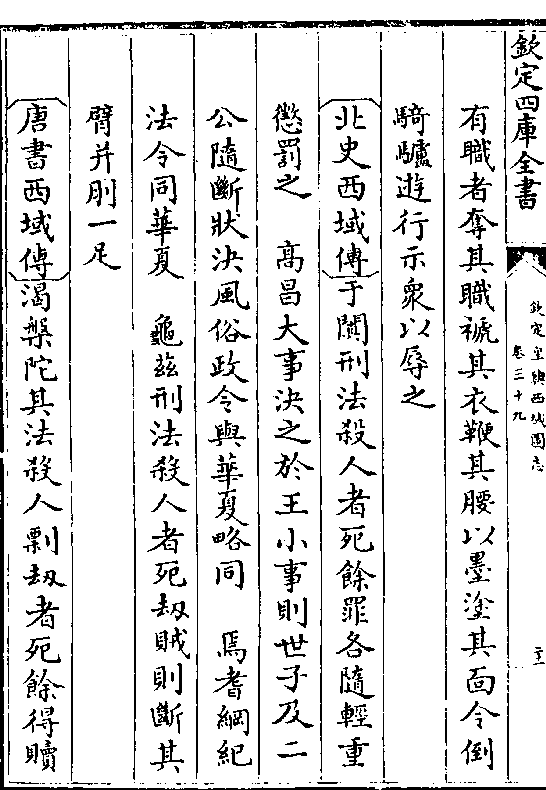 欽定四庫全書
欽定皇輿西域圖志
卷三十九
有職者奪其職褫其衣鞭其腰以墨塗其面令倒
騎驢遊行示衆以辱之
北史西域傳于闐刑法殺人者死餘罪各隨輕重
懲罰之　高昌大事決之於王小事則世子及二
公隨斷狀決風俗政令與華夏略同　焉耆綱紀
法令同華夏　龜茲刑法殺人者死刼賊則斷其
臂并刖一足
唐書西域傳渴槃陀其法殺人剽刼者死餘得贖